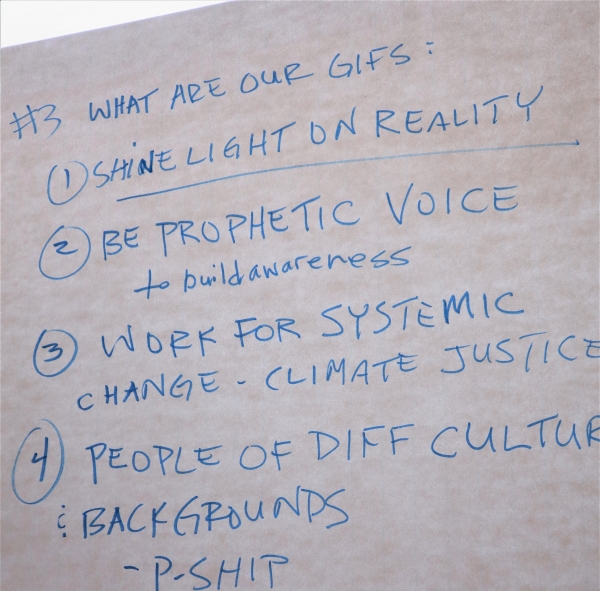 #3 WHAT ARE OUR GIFS:
① SHINE LIGHT ON REALITY
② BE PROPHETIC VOICE
to build awareness
③ WORK FOR SYSTEMIC
CHANGE - CLIMATE JUSTICE
④ PEOPLE OF DIFF CULTUR
& BACKGROUNDS
- P-SHIP